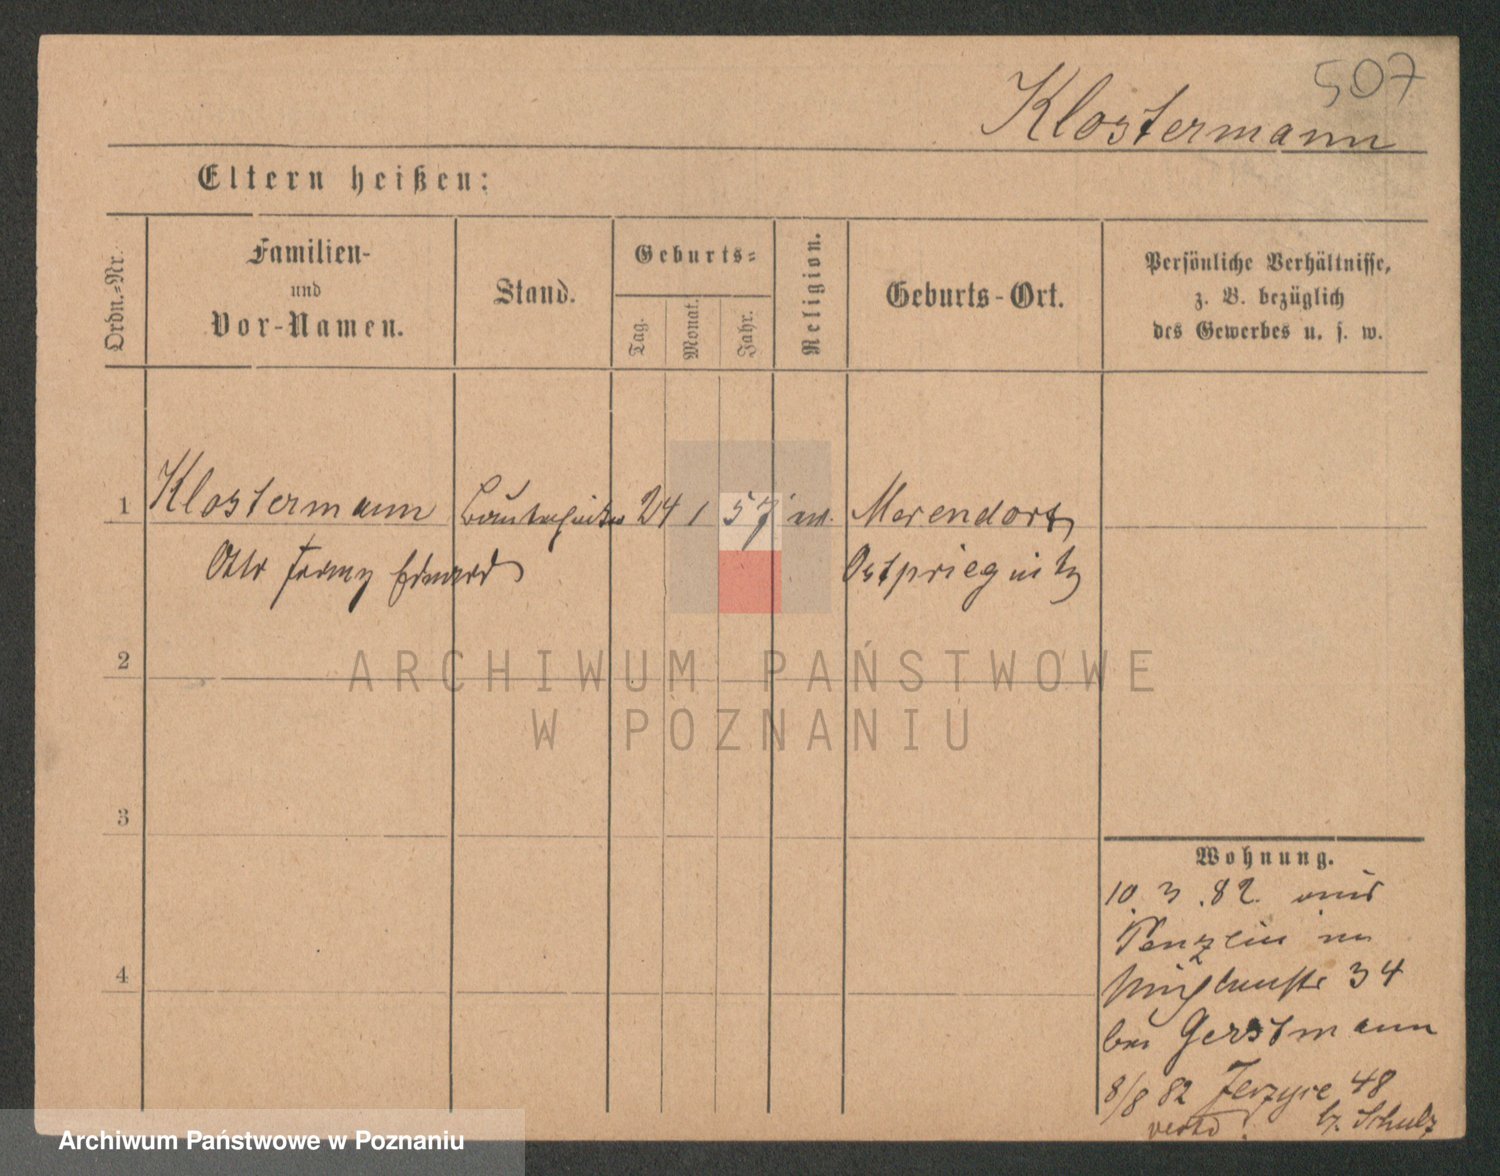 507
Klostermann
Eltern heißen:
Ordn.-Nr.
Familien-
und
Vor-Namen.
Stand.
Geburts-
Tag.
Monat.
Jahr.
Religion.
Geburts-Ort.
Persönliche Verhältnisse,
z. B. bezüglich
des Gewerbes u. s. w.
1 Klostermann 24 1 57
Otto Eduard Ostpriegnitz
2
ARCHIWUM PAŃSTWOWE
W POZNANIU
3
4
Wohnung.
10.3.82. aus
Penzlin
34
bei Gerstmann
8/8 82 Jerzyce 48
b. Schulz
Archiwum Państwowe w Poznaniu